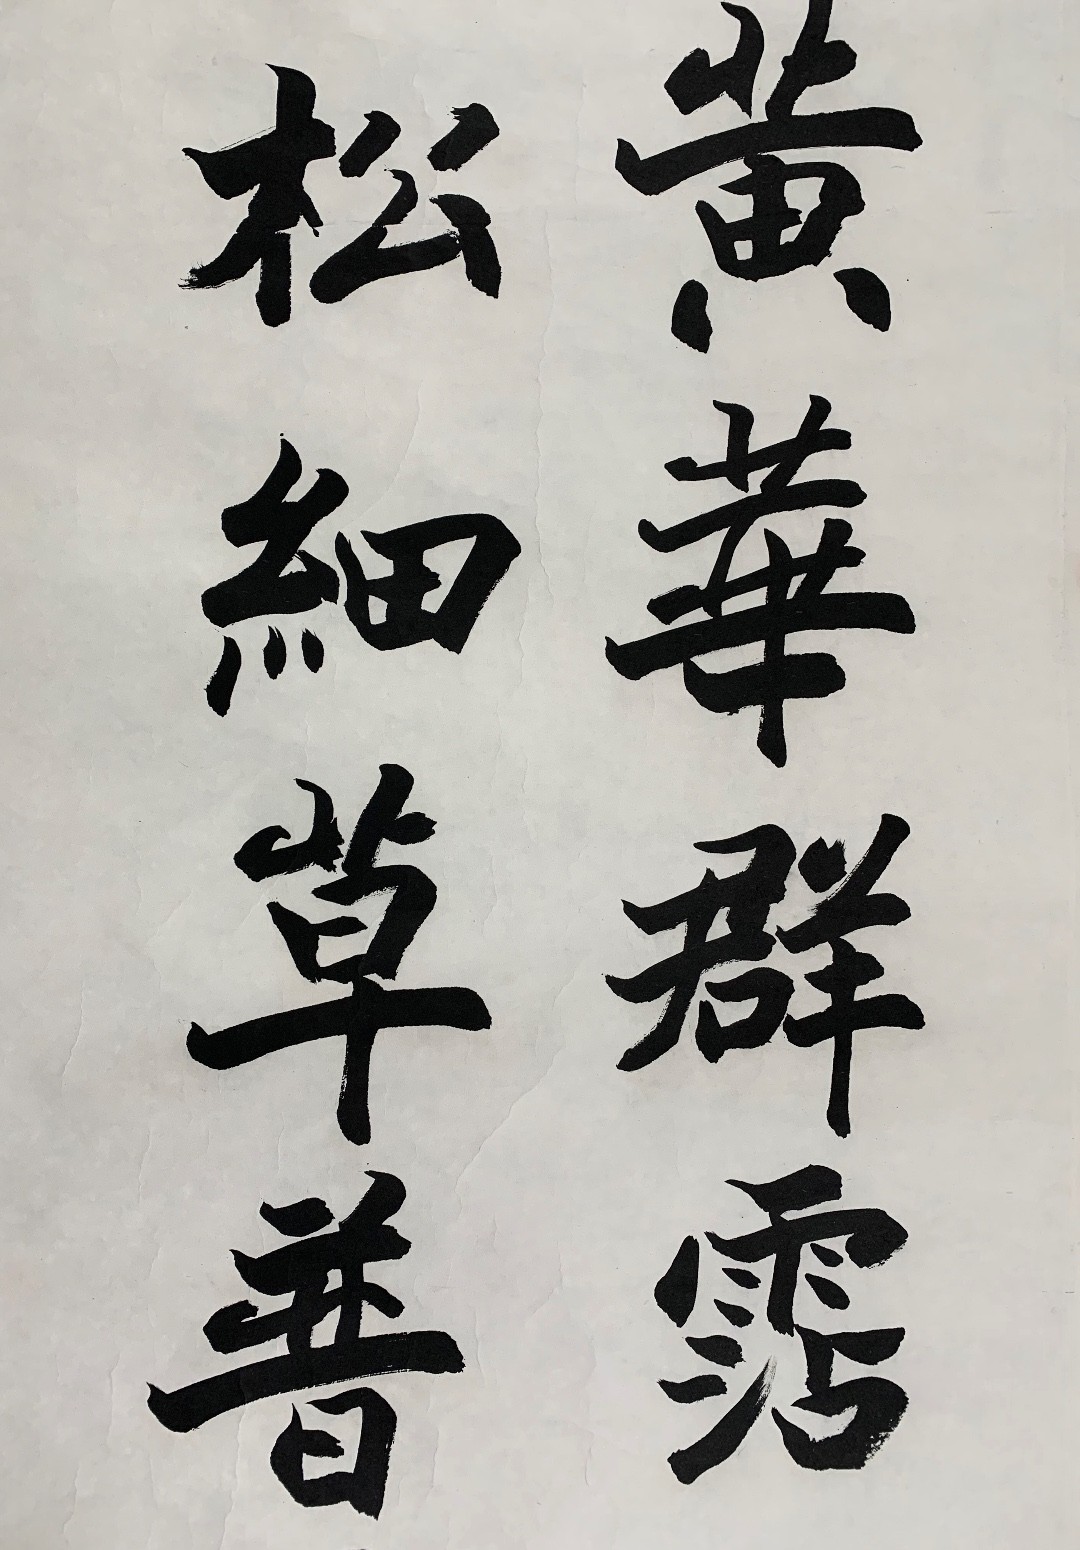 黄華群霑
松細草普